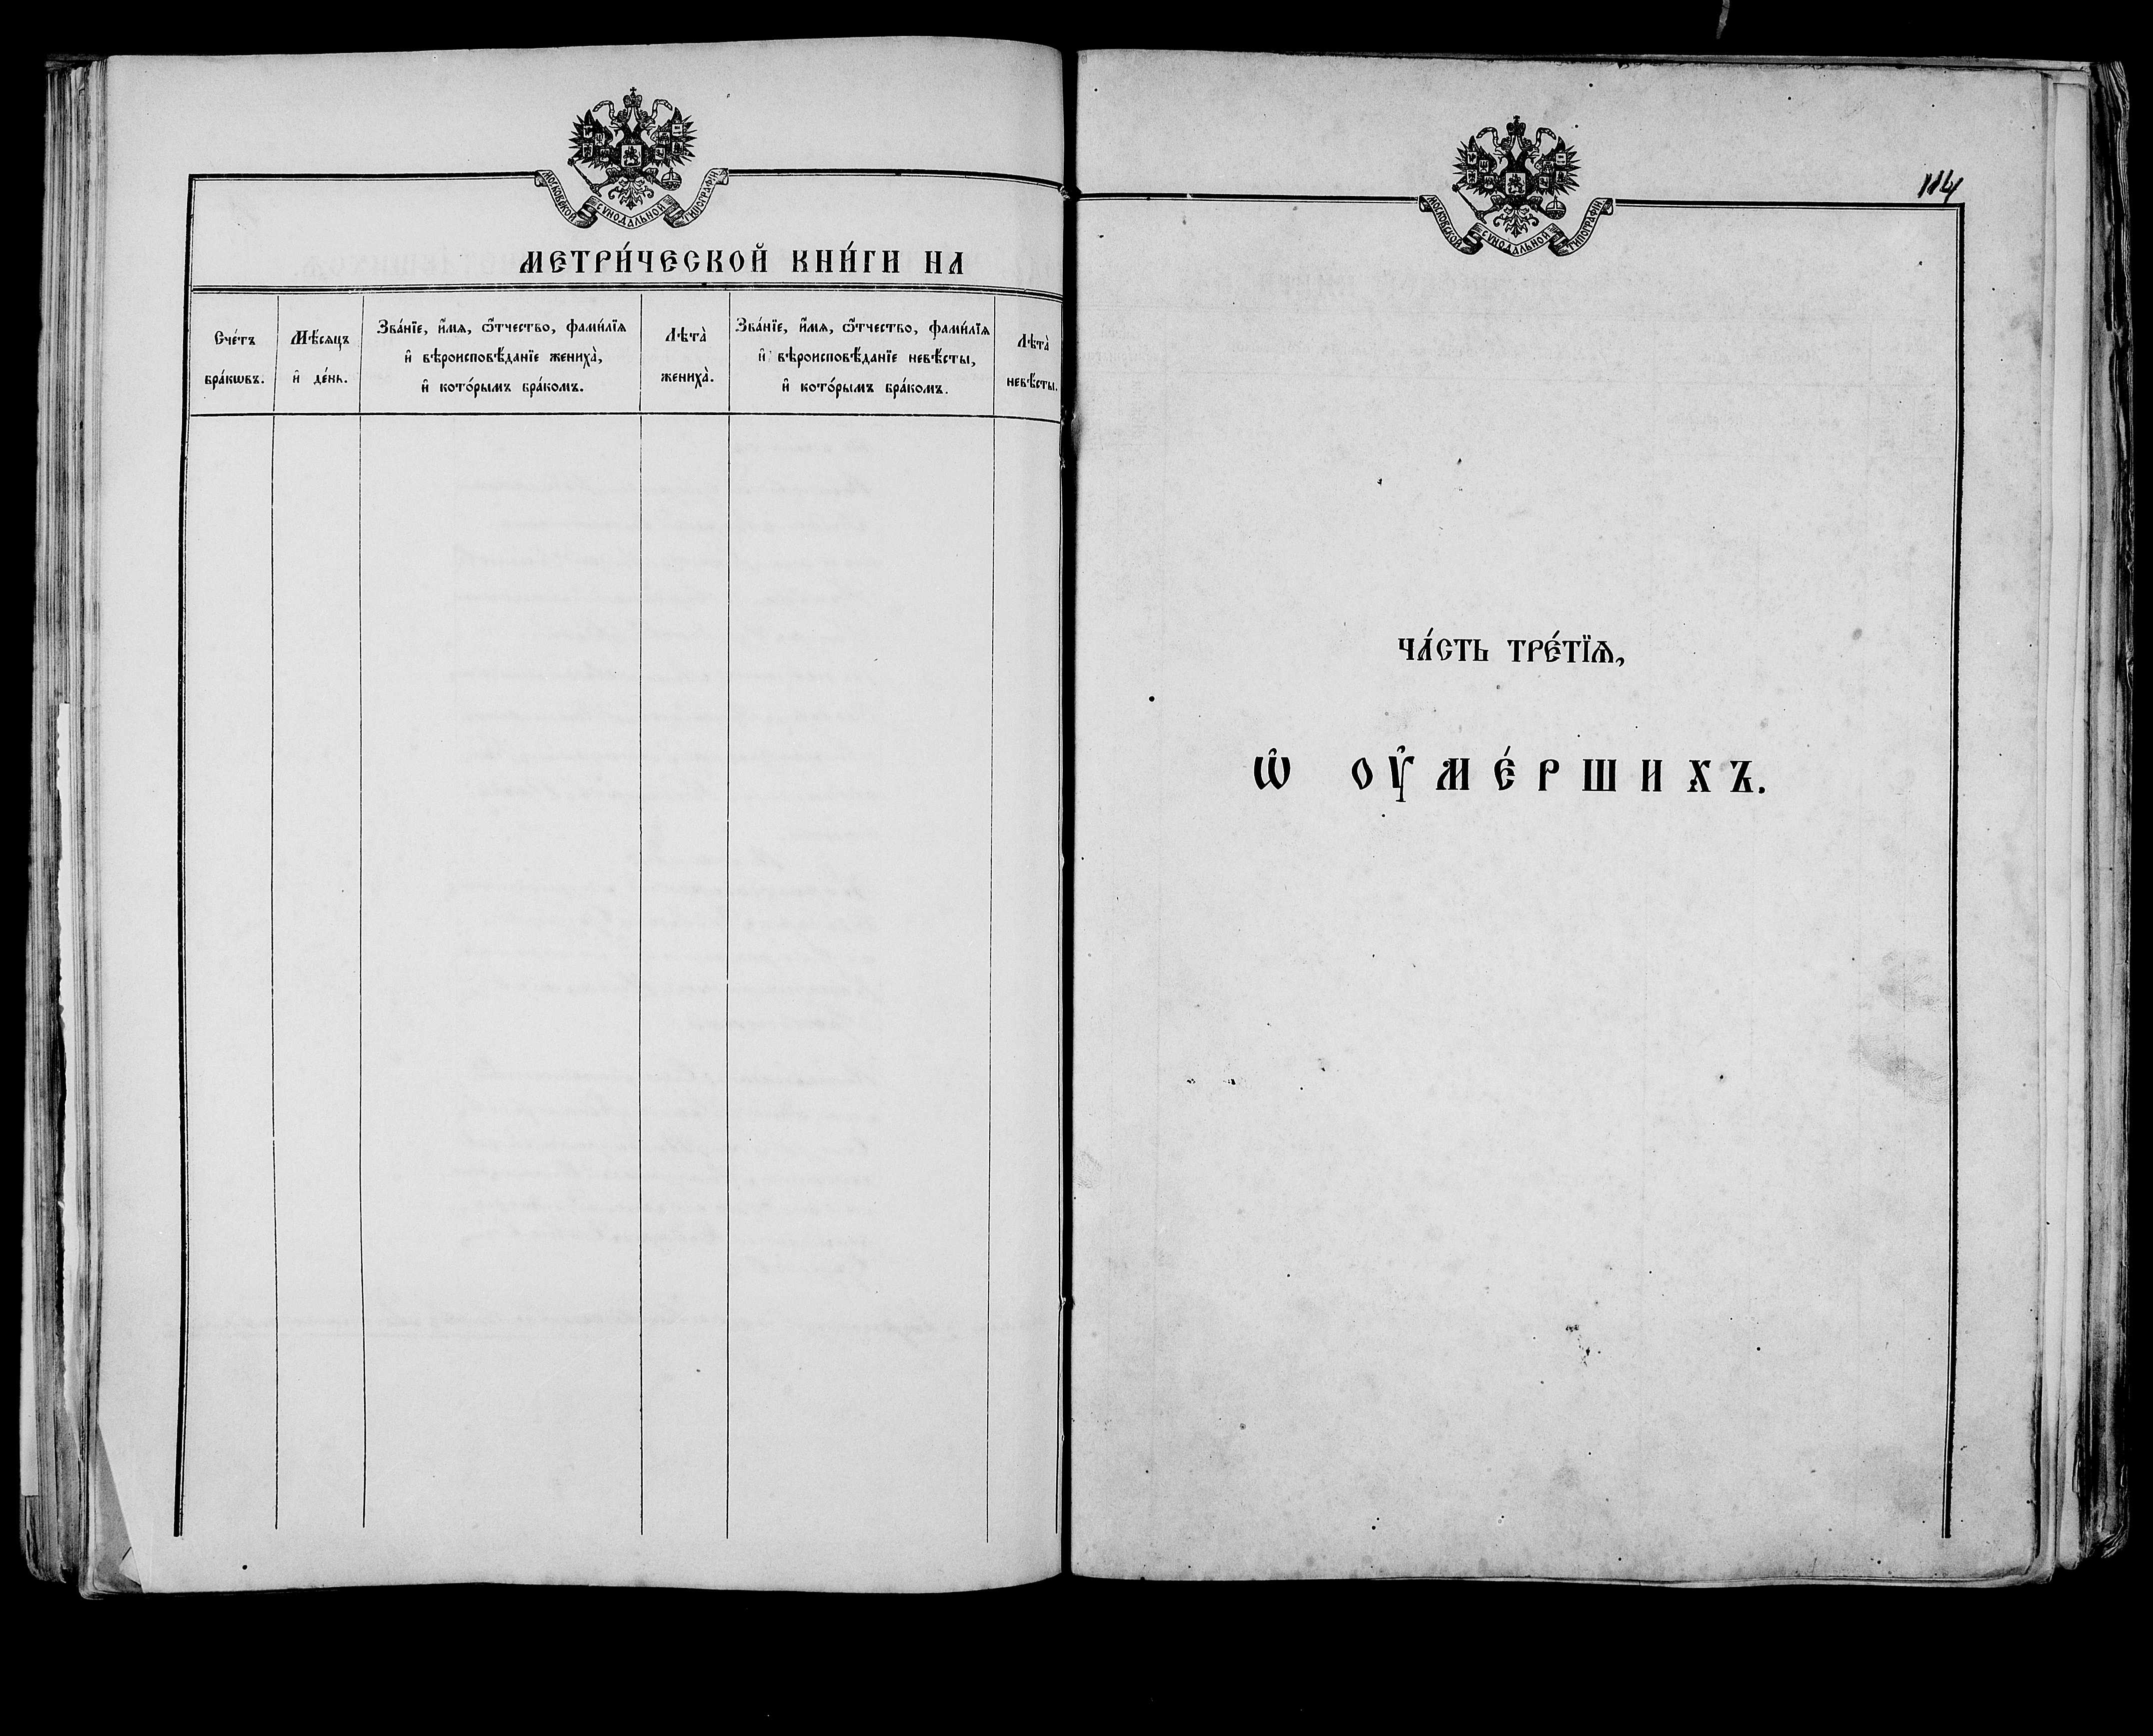 МОСКОВСКОЙ СѴНОДАЛЬНОЙ ТИПОГРАФІИ
МЕТРИ́ЧЕСКОЙ КНИ́ГИ НА
Сче́тъ
бра́кѡвъ.
Мѣ́сяцъ
и҆ де́нь.
Зва́нїе, и҆́мѧ, ѻ҆́тчество, фами́лїѧ
и҆ вѣроисповѣ́данїе жениха̀,
и҆ кото́рымъ бра́комъ.
Лѣта̀
жениха̀.
Зва́нїе, и҆́мѧ, ѻ҆́тчество, фами́лїѧ
и҆ вѣроисповѣ́данїе невѣ́сты,
и҆ кото́рымъ бра́комъ.
Лѣта̀
невѣ́сты.
114
МОСКОВСКОЙ СѴНОДАЛЬНОЙ ТИПОГРАФІИ
ЧА́СТЬ ТРЕ́ТЇѦ,
Ѡ҆ ОУ҆МЕ́РШИХЪ.